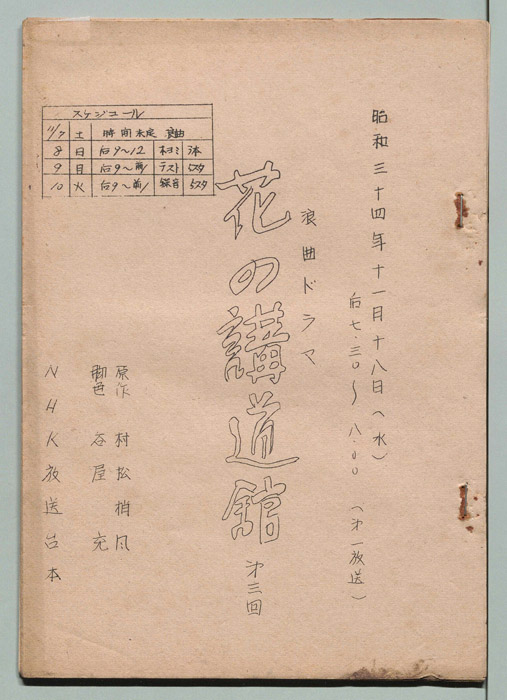 昭和三十四年十一月十八日(水)
后七・三〇〜八・〇〇 (第一放送)
浪曲ドラマ
花の講道館 第三回
原作 村松梢風
脚色 谷屋充
NHK放送台本
スケジュール
11/7 土 時間未定 浪曲
8 日 后9〜12 本ヨミ
9 月 后9〜前1 テスト
10 火 后9〜前1 録音